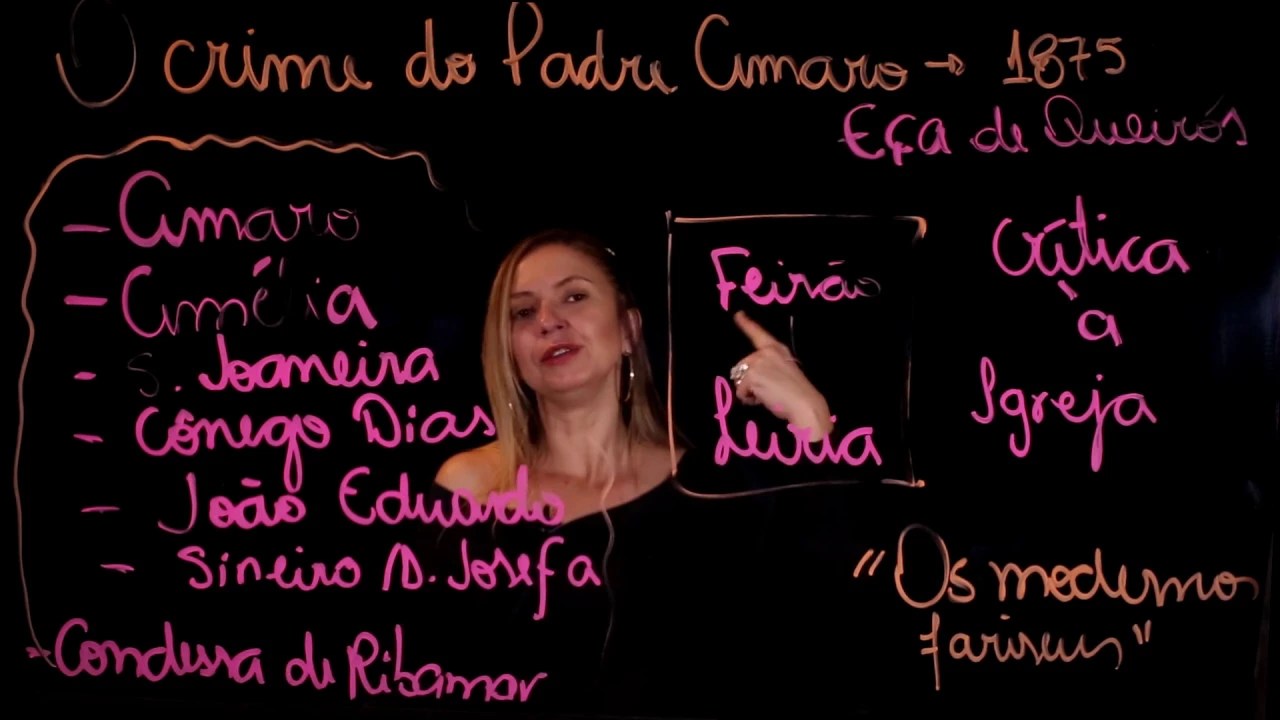 O crime do Padre Amaro → 1875
Eça de Queirós
- Amaro
- Amélia
- S. Joaneira
- Cônego Dias
- João Eduardo
- Sineiro D. Josefa
- Condessa de Ribamar
Feirão
Leiria
Crítica
à
Igreja
"Os modernos
fariseus"